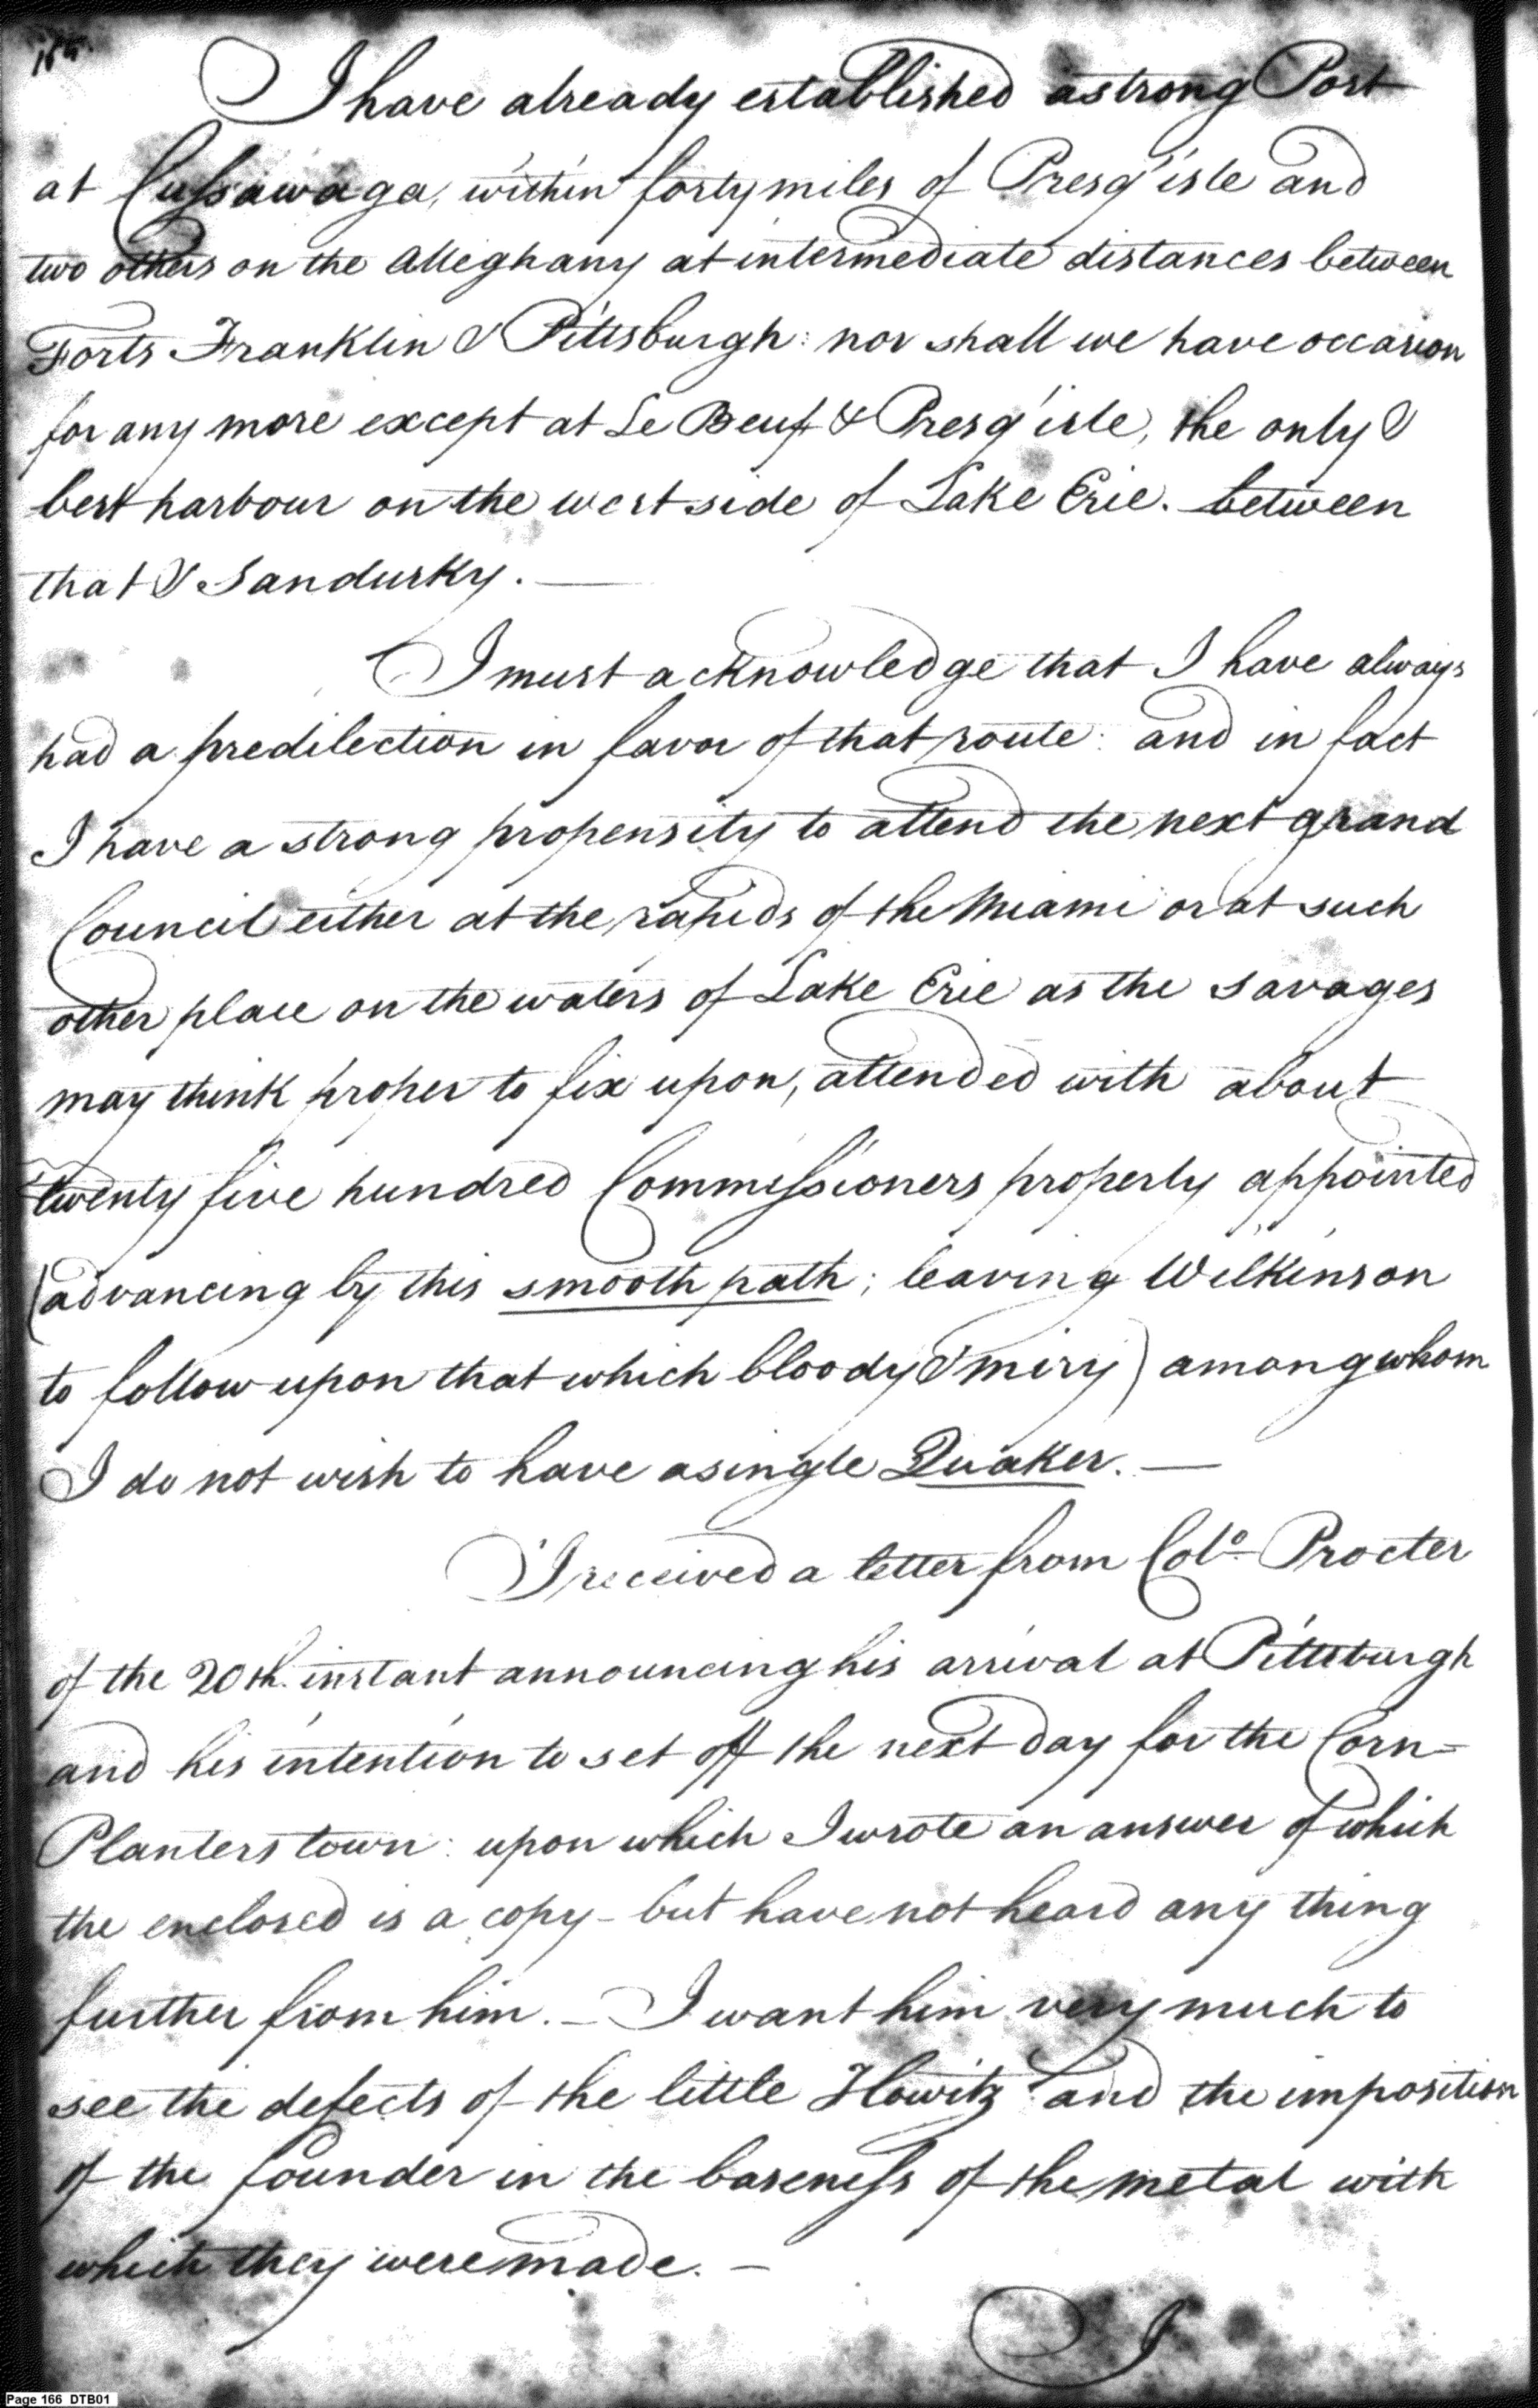 I have already established a strong Post
at Cussawaga, within forty miles of Presq'isle and
two others on the Alleghany at intermediate distances between
Forts Franklin & Pittsburgh: nor shall we have occasion
for any more except at Le Beuf & Presq'isle, the only &
best harbour on the west side of Lake Erie. between
that & Sandusky. —
I must acknowledge that I have always
had a predilection in favor of that route: and in fact
I have a strong propensity to attend the next grand
Council either at the rapids of the Miami or at such
other place on the waters of Lake Erie as the savages
may think proper to fix upon, attended with about
twenty five hundred Commissioners properly appointed
(advancing by this smooth path; leaving Wilkinson
to follow upon that which bloody & miry) among whom
I do not wish to have a single Quaker. —
I received a letter from Colo. Procter
of the 20th. instant announcing his arrival at Pittsburgh
and his intention to set off the next day for the Corn=
Planters town: upon which I wrote an answer of which
the enclosed is a copy - but have not heard any thing
further from him. — I want him very much to
see the defects of the little Howitz. and the imposition
of the founder in the baseness of the metal with
which they were made. —
I
Page 166 DTB01